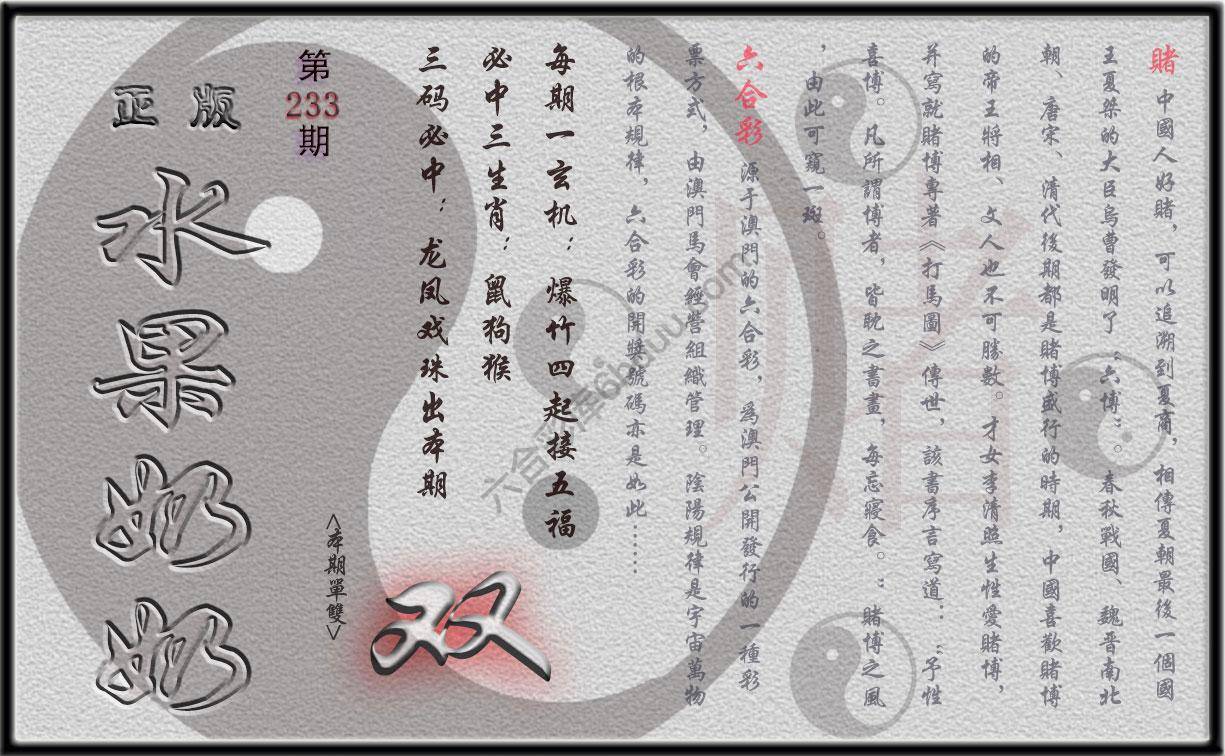 賭 中國人好賭，可以追溯到夏商，相傳夏朝最後一個國
王夏桀的大臣烏曹發明了“六博”。春秋戰國、魏晋南北
朝、唐宋、清代後期都是賭博盛行的時期，中國喜歡賭博
的帝王將相、文人也不可勝數。才女李清照生性愛賭博，
并寫就賭博專著《打馬圖》傳世，該書序言寫道：“予性
喜博。凡所謂博者，皆眈之書畫，每忘寢食。”賭博之風
，由此可窺一斑。
六合彩 源于澳門的六合彩，爲澳門公開發行的一種彩
票方式，由澳門馬會經營組織管理。陰陽規律是宇宙萬物
的根本規律，六合彩的開獎號碼亦是如此......
每期一玄机：爆竹四起接五福
必中三生肖：鼠狗猴
三码必中：龙凤戏珠出本期
<本期單雙>
双
第
233
期
正版
水果奶奶
賭